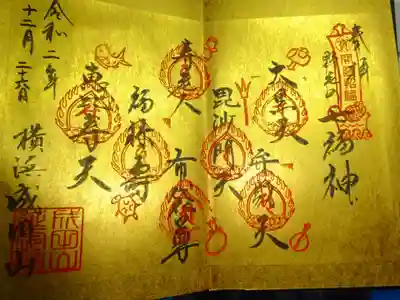 奉拝
野毛山
七福神
大黒天
弁財天
毘沙門天
寿老人
布袋尊
福禄寿
恵比寿天
令和二年
十二月二十六日
横浜成田山